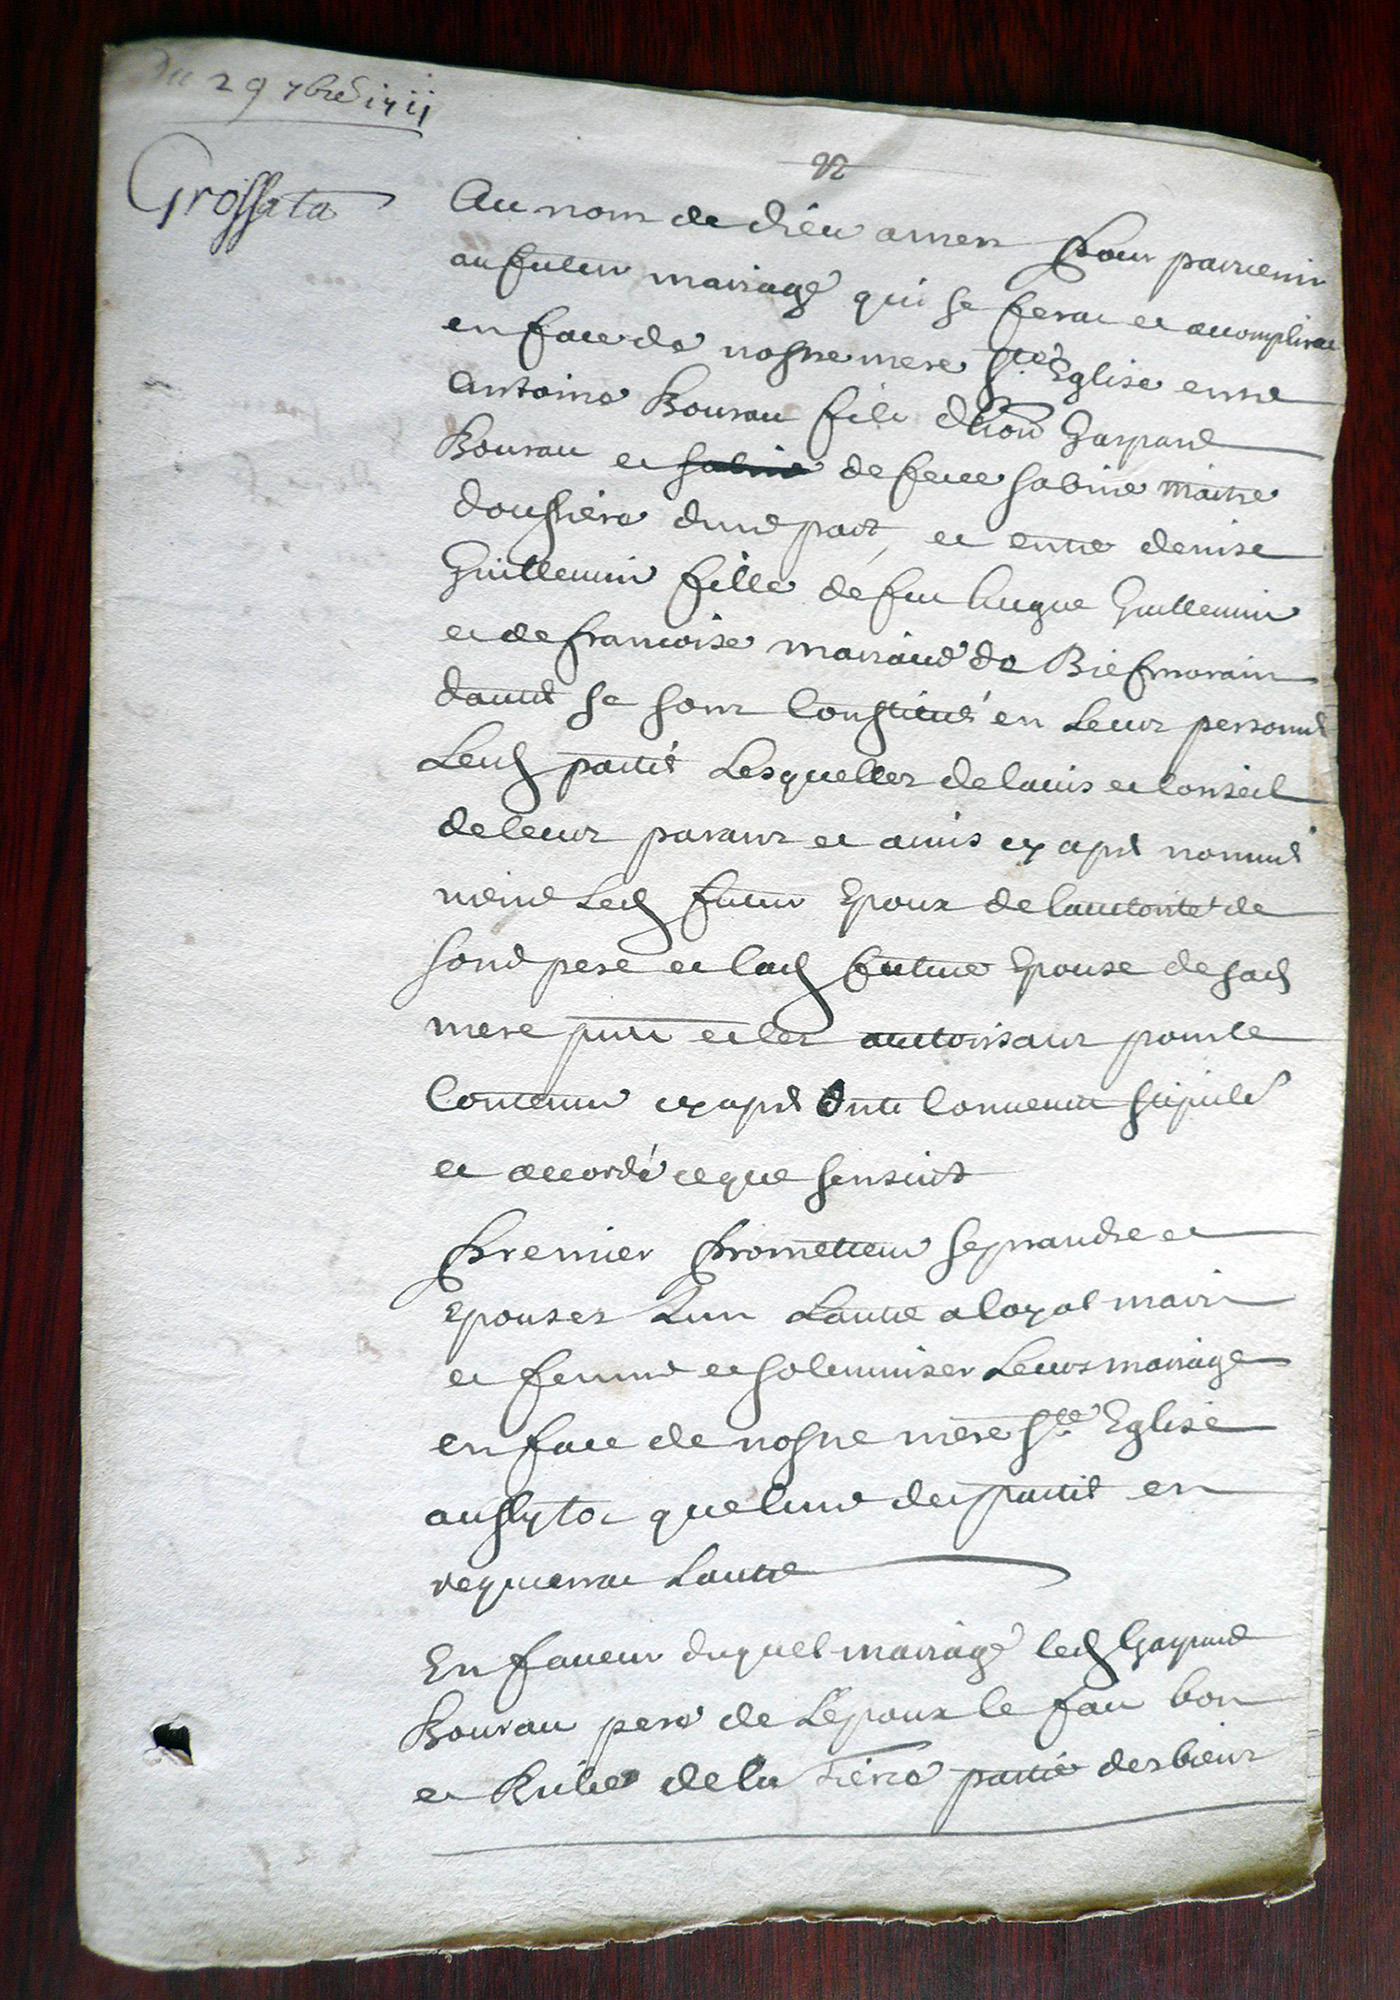 Du 29 7bre 1711
Grossata
Au nom de dieu amen Pour parvenir
au futur mariage qui se ferat et accomplirat
en face de nostre mere Ste Eglise entre
Antoine Bourau fils dhon Gaspard
Bourau et de feue Sabine maitre
doussiere dune part, et entre denise
Guillemin fille de feu hugue Guillemin
et de francoise mairaud de Biefmorain
dautre se sont constitué en Leurs personnes
Lesd parties Lesquelles de lavis et conseil
de leurs parans et amis cy apres nommes
meme Led futur Epoux de lauctorité de
sond pere et lad future Epouse de sad
mere pnte et les auctorisant pour le
contenu cy apres Ont convenut stipulé
et accordé ce que sensuit
Premier Promettent se prandre et
epouser Lun Lautre a loyal mari
et femme et solemniser Leurs mariage
en face de nostre mere Ste Eglise
aussytot que lune des parties en
requerrat Lautre
En faveur duquel mariage led Gaspard
Bourau pere de Lépoux le fait bon
et Riche de la Tierce partie des biens